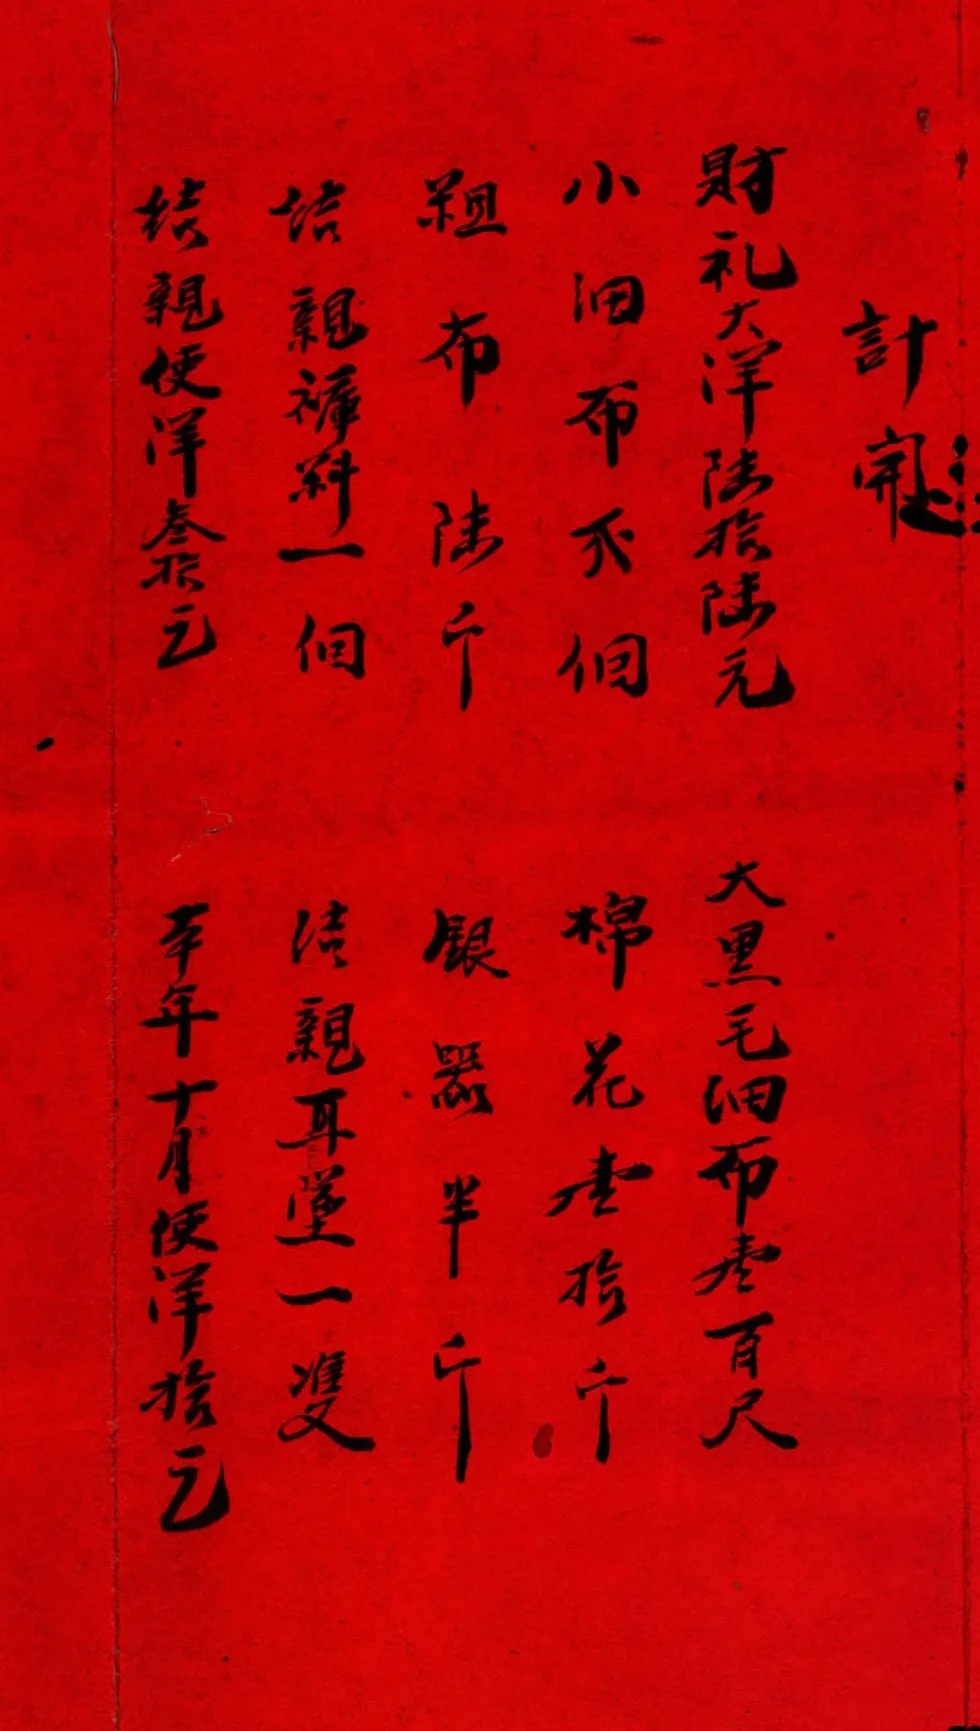 計開
財礼大洋陆拾陆元
大黑毛细布壹百尺
小细布贰個
棉花壹拾斤
粗布陆斤
银器半斤
结親裤料一個
结親耳墜一雙
结親使洋叁拾元
本年十月使洋拾元